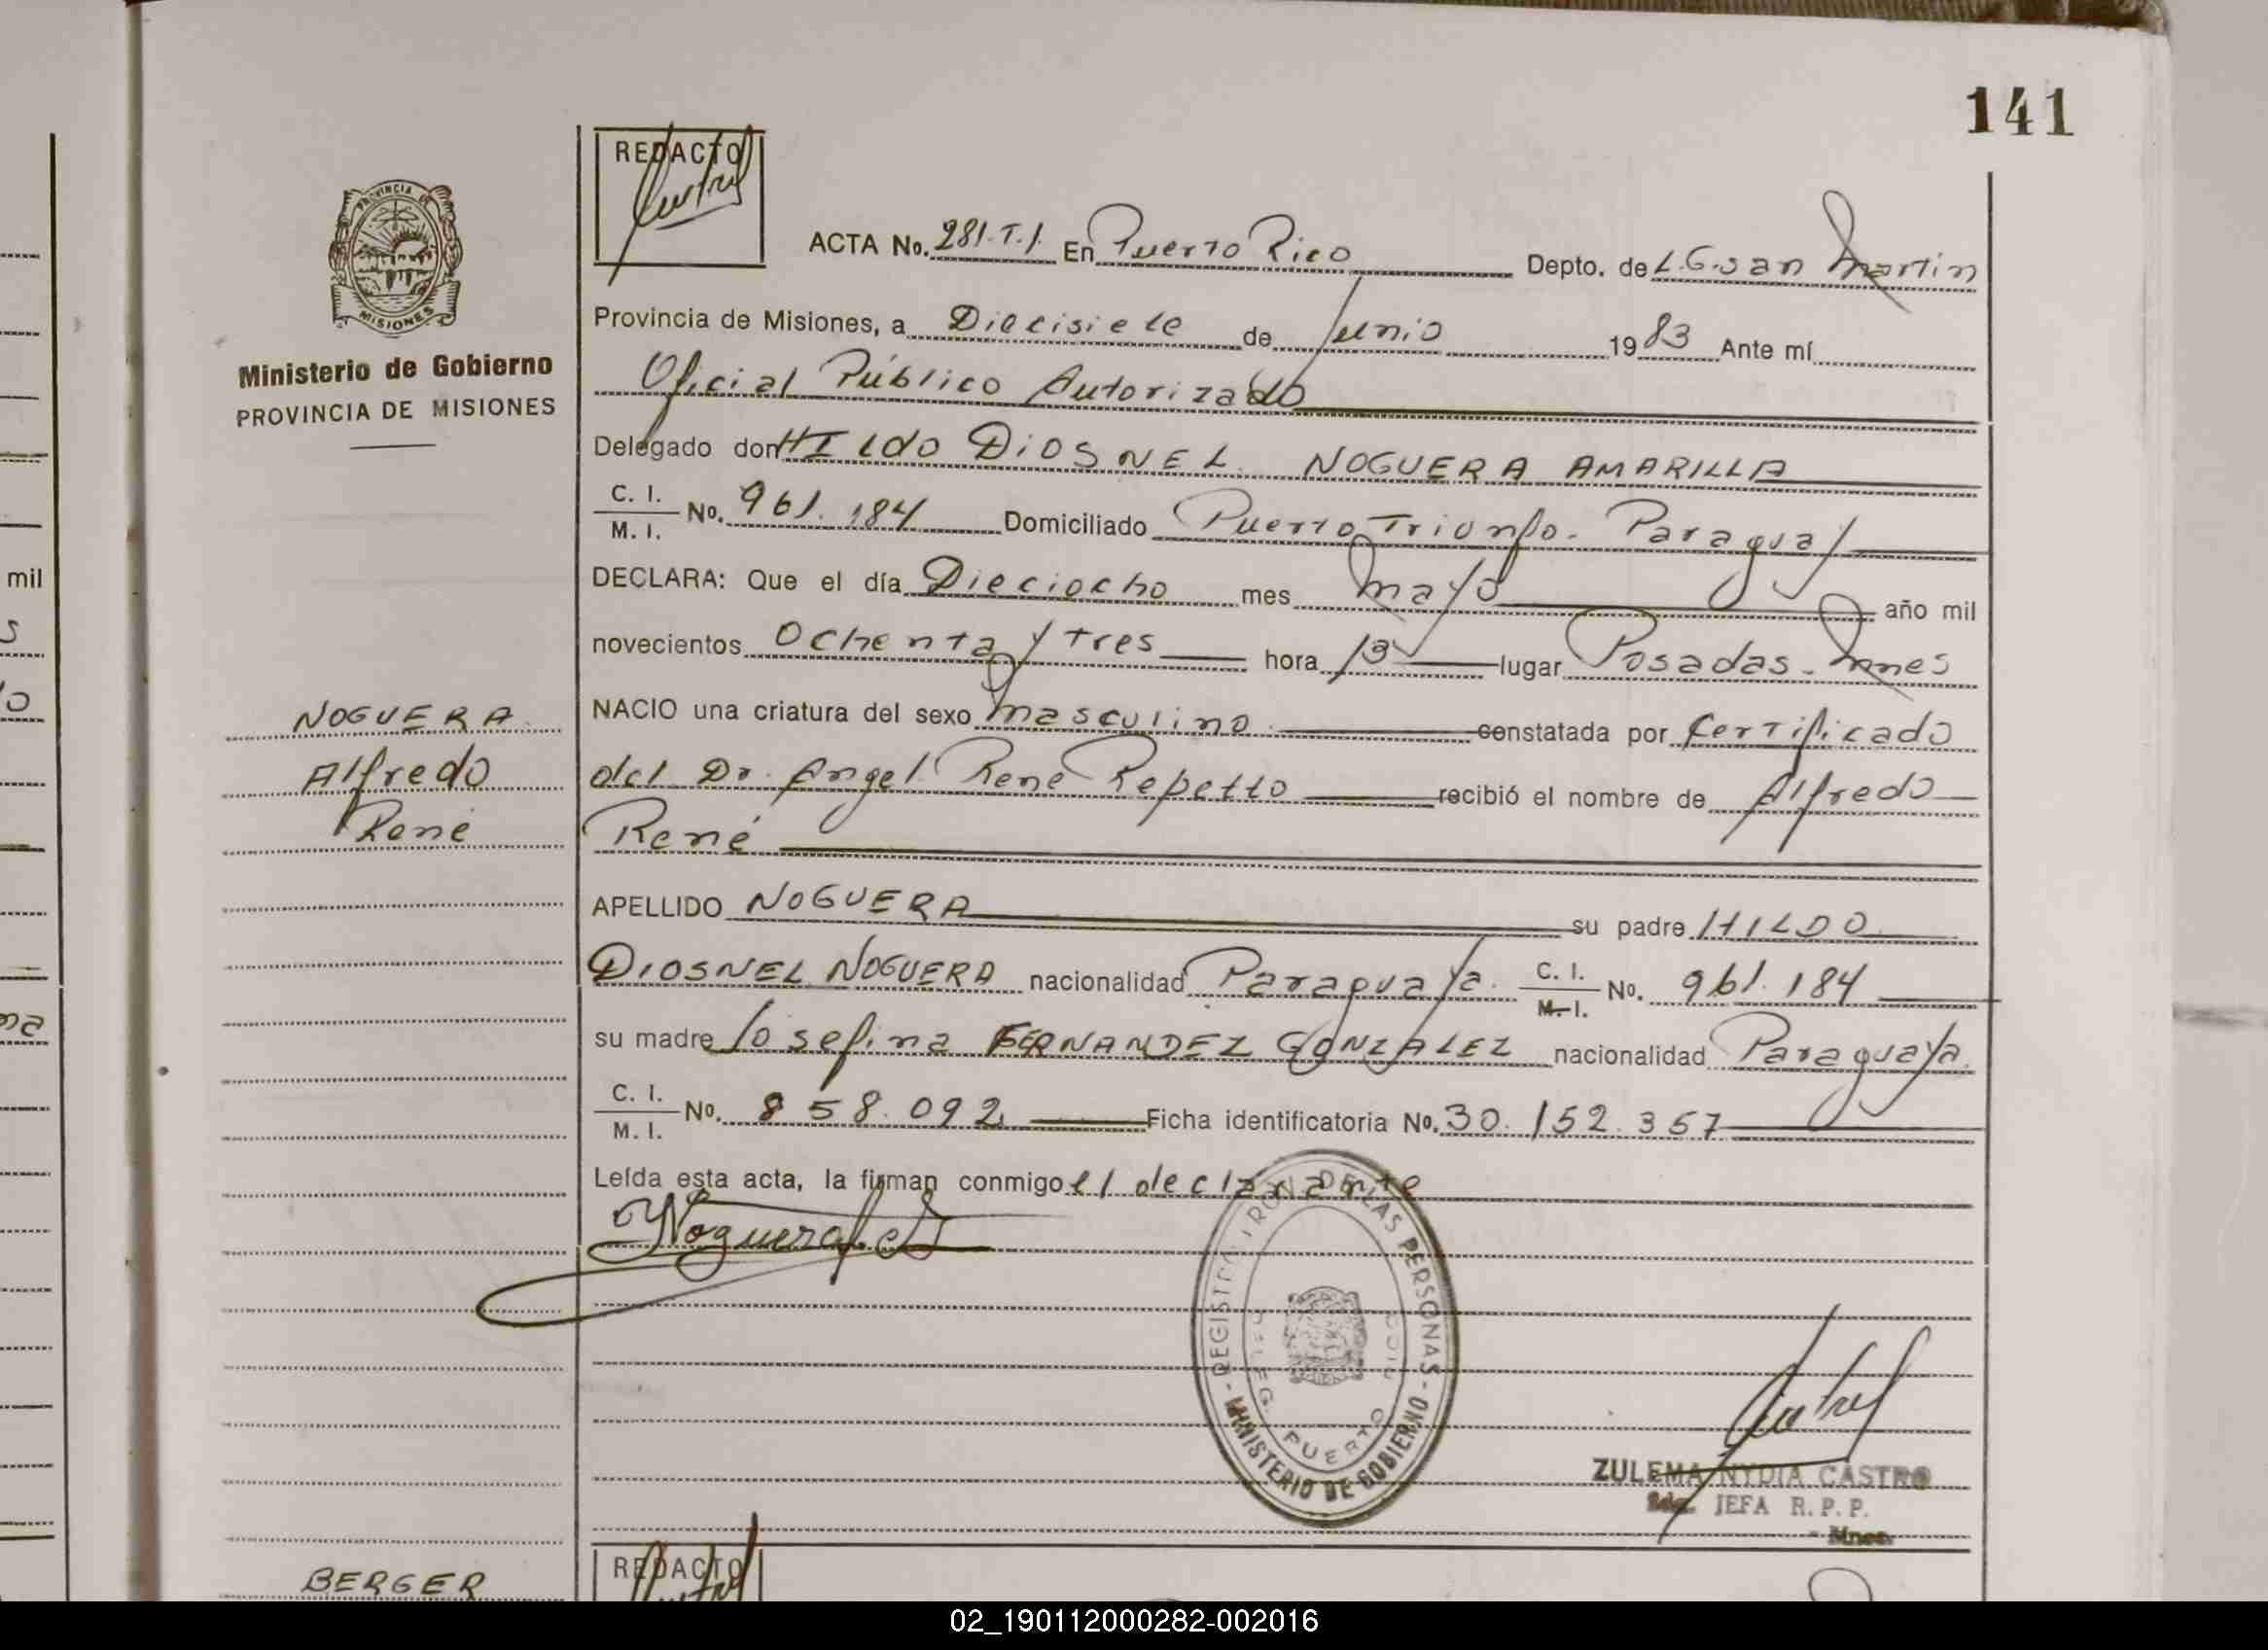 141
REDACTO
PROVINCIA DE
MISIONES
ACTA No. 281.T.I. En Puerto Rico Depto. de L.G.San Martin
Provincia de Misiones, a Diecisiete de Junio 1983 Ante mí
Ministerio de Gobierno
PROVINCIA DE MISIONES
Oficial Público Autorizado
Delegado don HILDO DIOSNEL NOGUERA AMARILLA
C. I. / M. I. No. 961.184 Domiciliado Puerto Triunfo. Paraguay
mil
DECLARA: Que el día Dieciocho mes mayo año mil
novecientos Ochenta y tres hora 13 lugar Posadas. Mnes
NOGUERA
NACIO una criatura del sexo masculino constatada por Certificado
Alfredo
del Dr. Angel René Repetto recibió el nombre de Alfredo
René
René
APELLIDO NOGUERA su padre HILDO
DIOSNEL NOGUERA nacionalidad Paraguaya. C. I. / M. I. No. 961.184
su madre Josefina FERNANDEZ GONZALEZ nacionalidad Paraguaya
C. I. / M. I. No. 858.092 Ficha identificatoria No. 30.152.357
Leída esta acta, la firman conmigo el declarante
Noguera
REGISTRO PROV. DE LAS PERSONAS
MINISTERIO DE GOBIERNO
DELEG. PUERTO RICO
ZULEMA NYDIA CASTRO
JEFA R. P. P.
Mnes.
BERGER
REDACTO
02_190112000282-002016